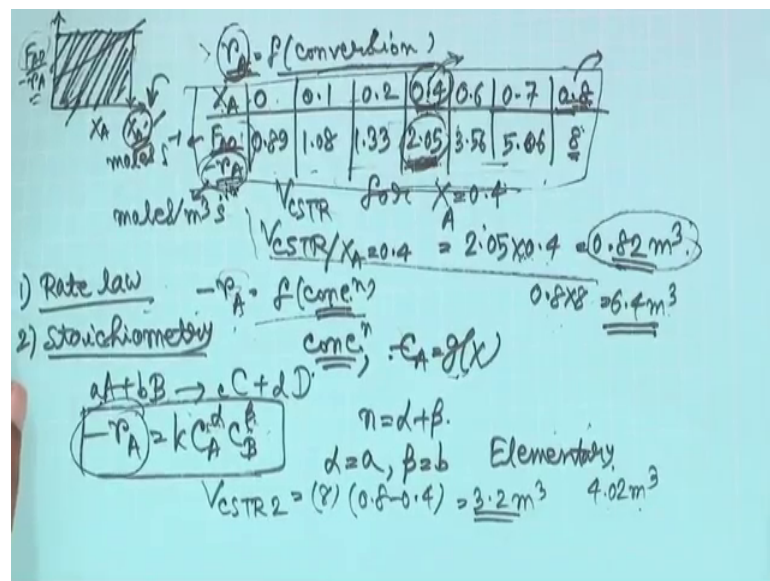 F_A0 / -r_A
r_A = f(conversion)
X_A X_A
X_A 0 0.1 0.2 0.4 0.6 0.7 0.8
F_A0 / -r_A 0.89 1.08 1.33 2.05 3.56 5.06 8
moles s⁻¹
moles/m³s
V_CSTR for X_A=0.4
V_CSTR/X_A=0.4 = 2.05×0.4 = 0.82 m³.
0.8×8 = 6.4 m³
1) Rate law -r_A = f(concⁿ)
2) Stoichiometry concⁿ, C_A = g(X)
aA+bB → cC+dD
-r_A = k C_A^α C_B^β
n=α+β.
α=a, β=b Elementary
V_CSTR 2 = (8) (0.8-0.4) = 3.2 m³ 4.02 m³